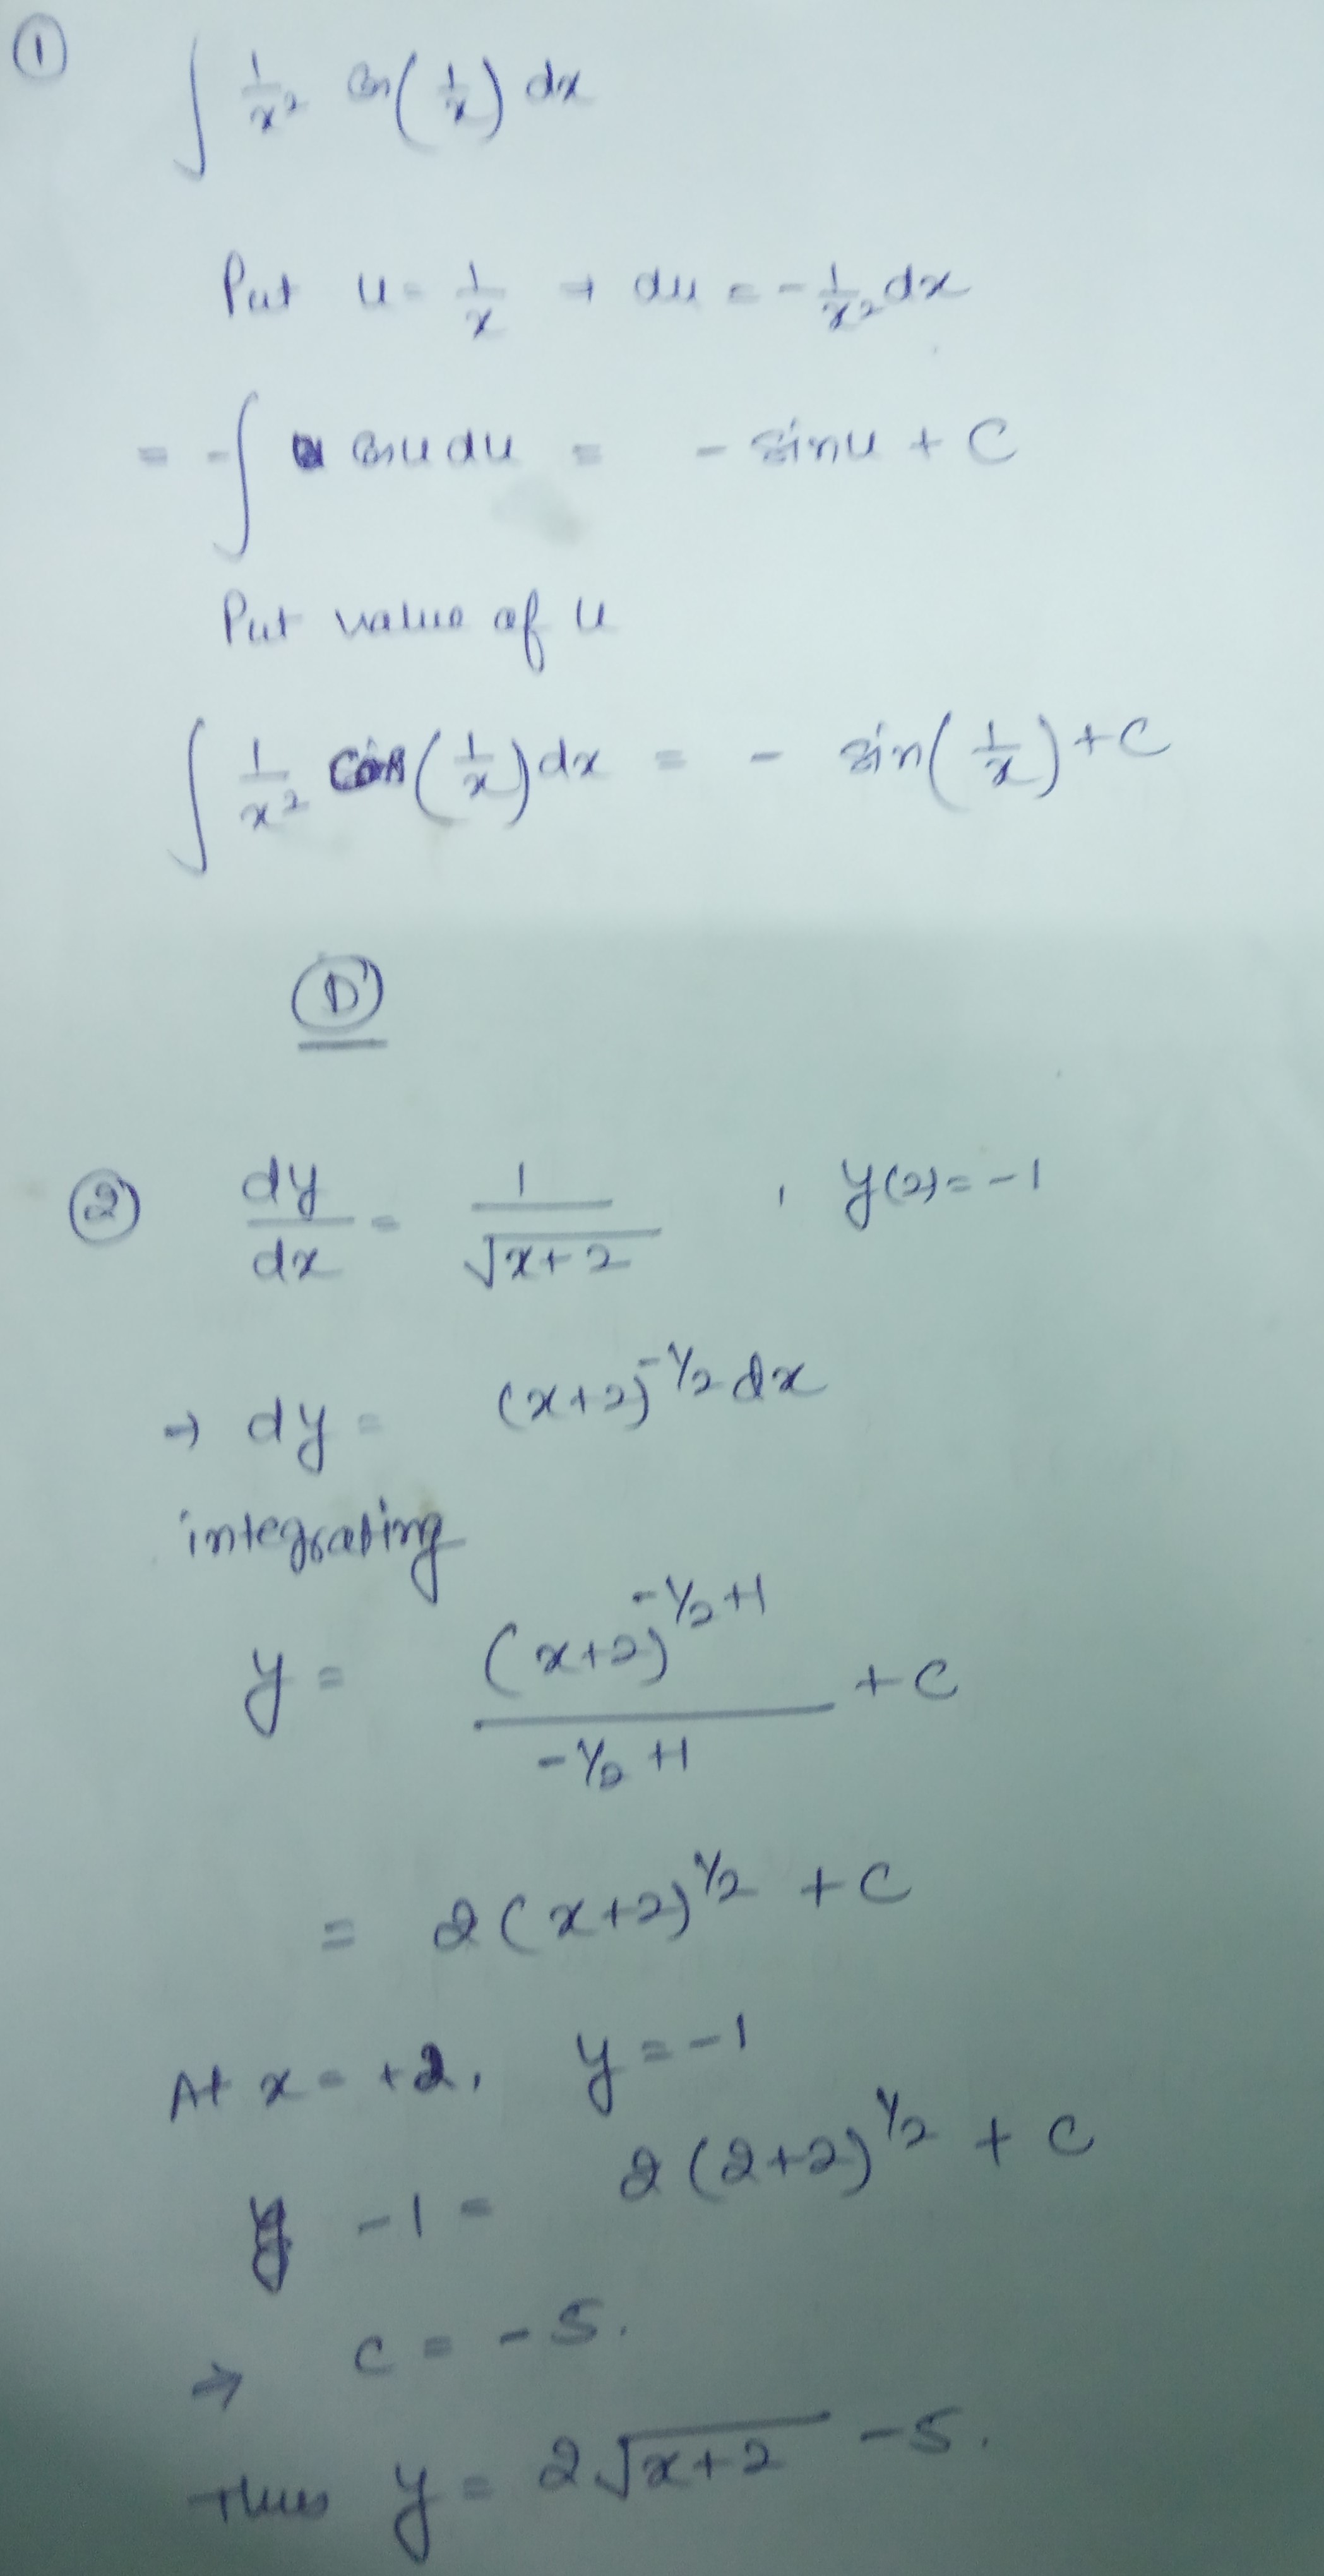 ① ∫ 1/x² cos(1/x) dx
Put u = 1/x → du = -1/x² dx
= -∫ cosu du = - sinu + C
Put value of u
∫ 1/x² cos(1/x) dx = - sin(1/x) + C
D
② dy/dx = 1/√x+2 , y(2) = -1
→ dy = (x+2)^-1/2 dx
integrating
y = (x+2)^-1/2+1 / -1/2+1 + C
= 2(x+2)^1/2 + C
At x = +2, y = -1
-1 = 2(2+2)^1/2 + C
⇒ C = -5.
Thus y = 2√x+2 -5.